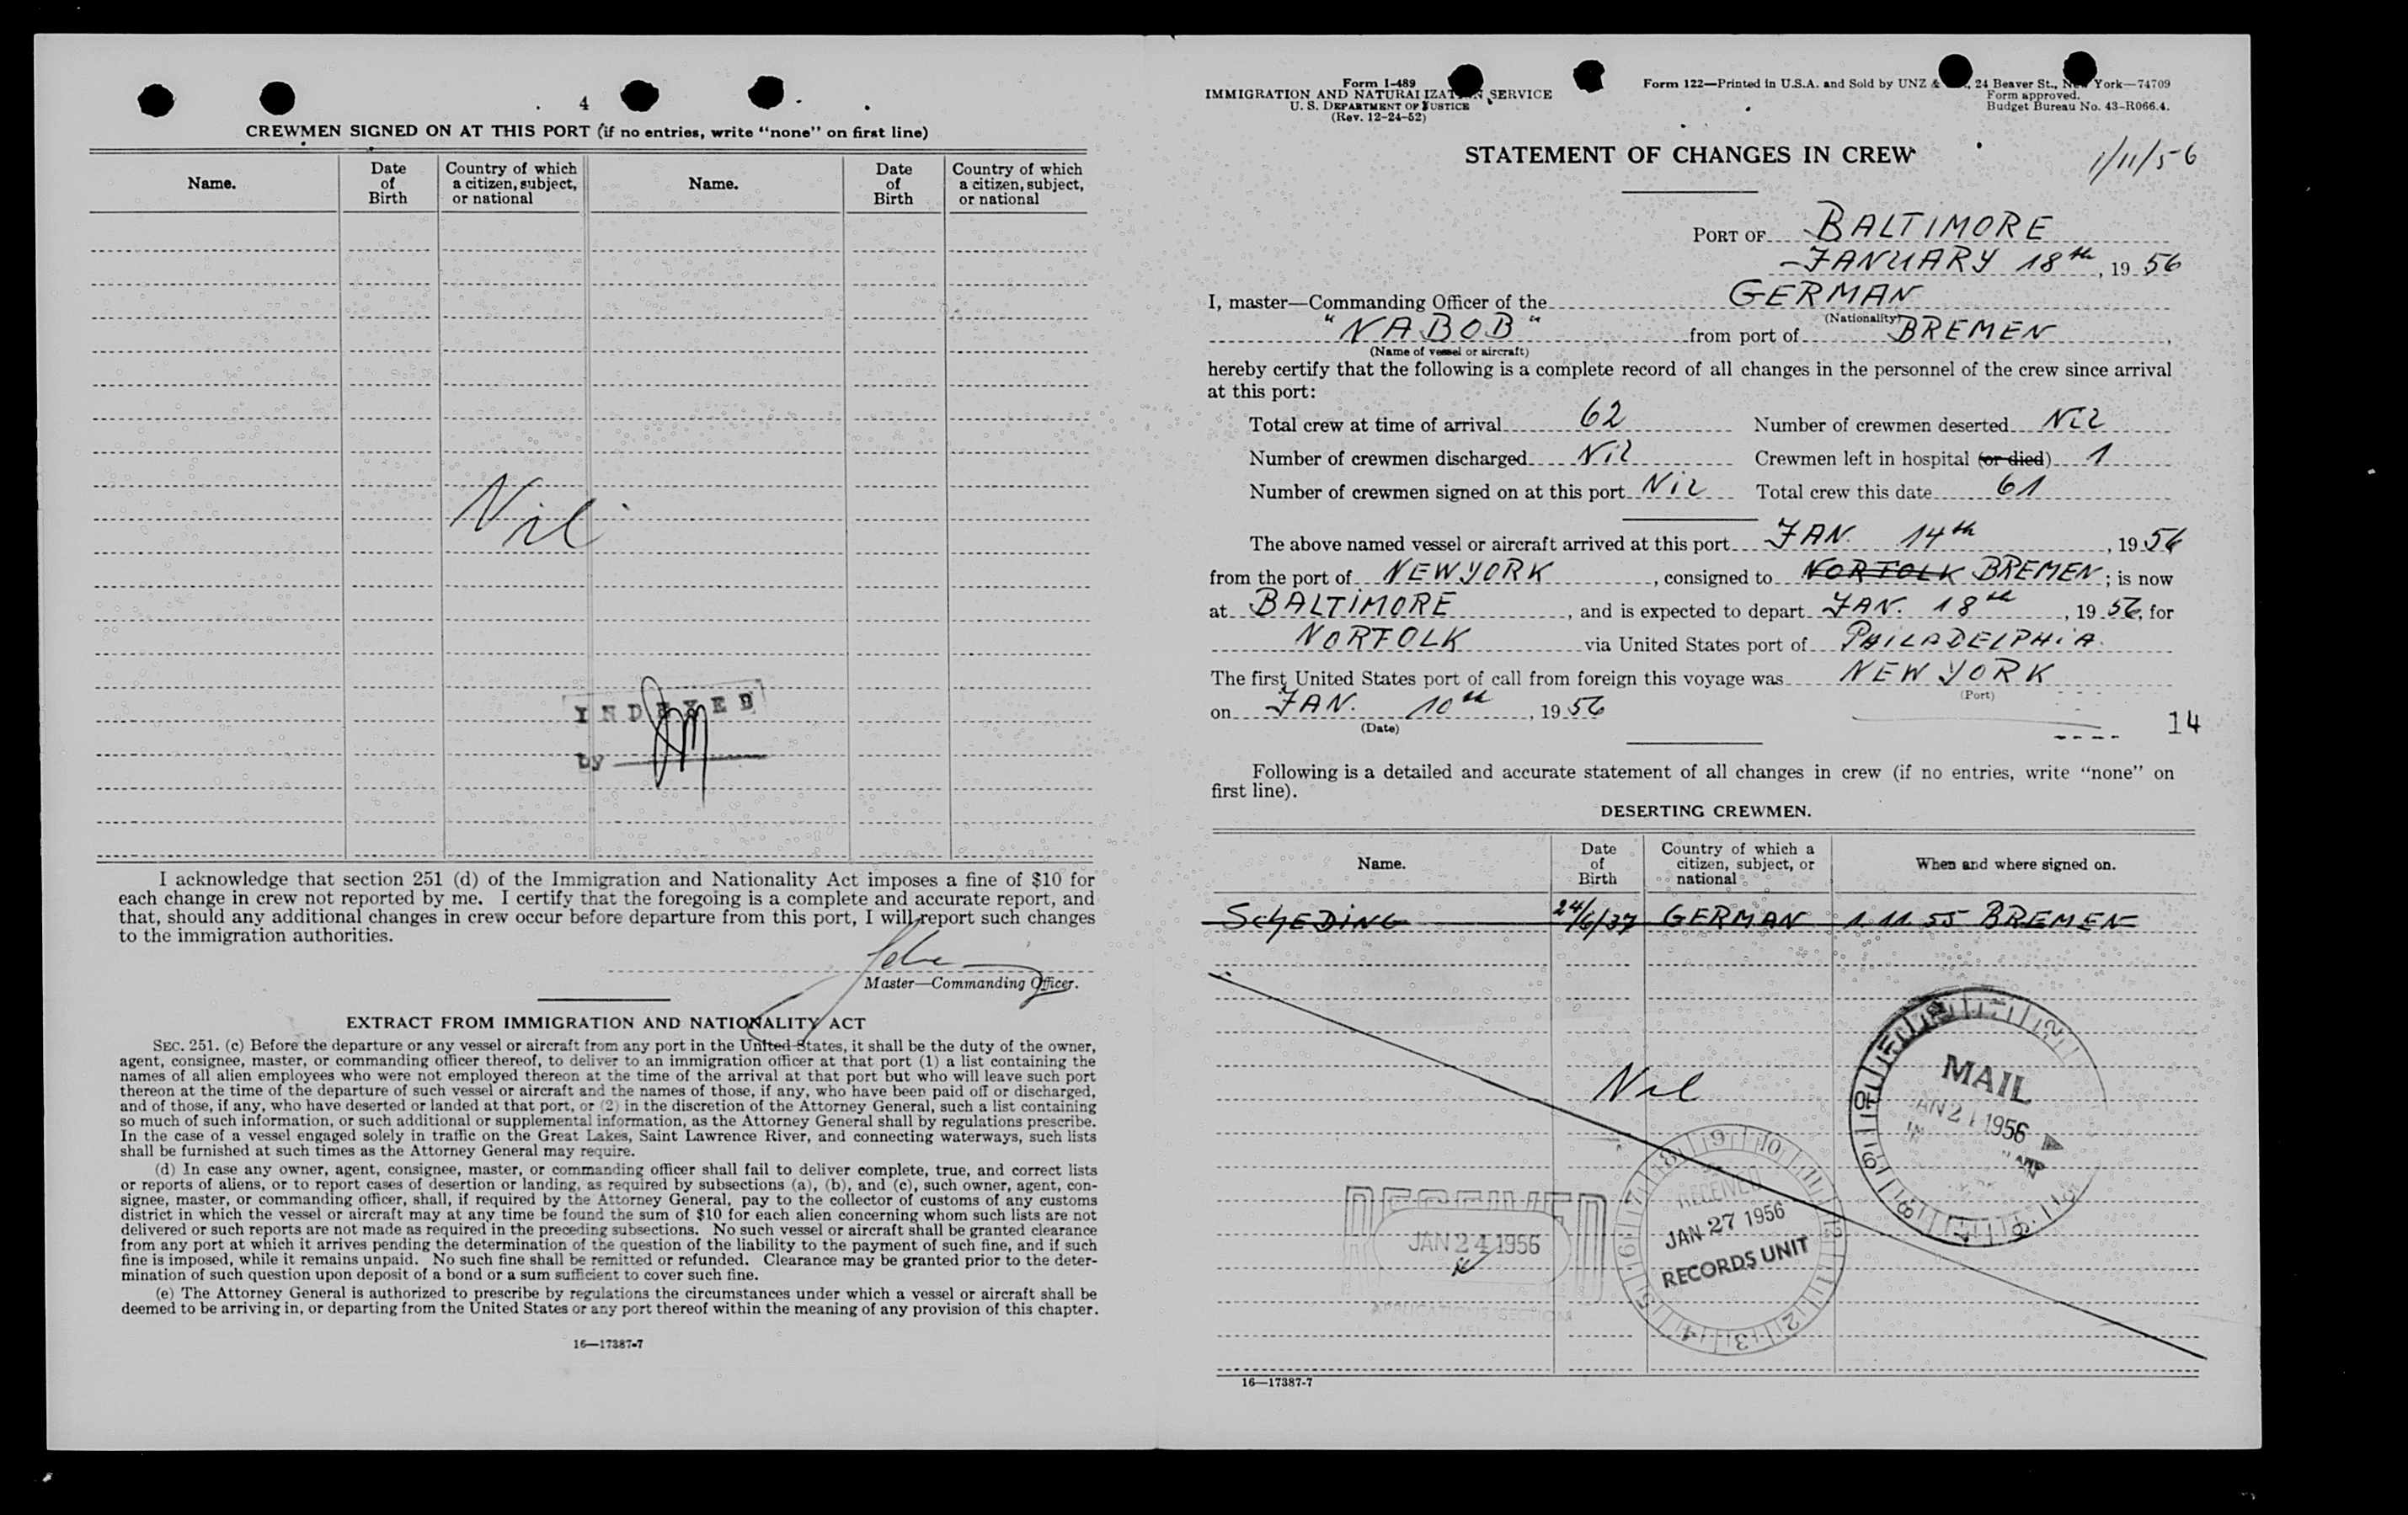 4
CREWMEN SIGNED ON AT THIS PORT (if no entries, write "none" on first line)
Name. Date of Birth Country of which a citizen, subject, or national Name. Date of Birth Country of which a citizen, subject, or national
Nil
INDEXED
by
I acknowledge that section 251 (d) of the Immigration and Nationality Act imposes a fine of $10 for
each change in crew not reported by me. I certify that the foregoing is a complete and accurate report, and
that, should any additional changes in crew occur before departure from this port, I will report such changes
to the immigration authorities.
Master—Commanding Officer.
EXTRACT FROM IMMIGRATION AND NATIONALITY ACT
SEC. 251. (c) Before the departure or any vessel or aircraft from any port in the United States, it shall be the duty of the owner,
agent, consignee, master, or commanding officer thereof, to deliver to an immigration officer at that port (1) a list containing the
names of all alien employees who were not employed thereon at the time of the arrival at that port but who will leave such port
thereon at the time of the departure of such vessel or aircraft and the names of those, if any, who have been paid off or discharged,
and of those, if any, who have deserted or landed at that port, or (2) in the discretion of the Attorney General, such a list containing
so much of such information, or such additional or supplemental information, as the Attorney General shall by regulations prescribe.
In the case of a vessel engaged solely in traffic on the Great Lakes, Saint Lawrence River, and connecting waterways, such lists
shall be furnished at such times as the Attorney General may require.
(d) In case any owner, agent, consignee, master, or commanding officer shall fail to deliver complete, true, and correct lists
or reports of aliens, or to report cases of desertion or landing, as required by subsections (a), (b), and (c), such owner, agent, con-
signee, master, or commanding officer, shall, if required by the Attorney General, pay to the collector of customs of any customs
district in which the vessel or aircraft may at any time be found the sum of $10 for each alien concerning whom such lists are not
delivered or such reports are not made as required in the preceding subsections. No such vessel or aircraft shall be granted clearance
from any port at which it arrives pending the determination of the question of the liability to the payment of such fine, and if such
fine is imposed, while it remains unpaid. No such fine shall be remitted or refunded. Clearance may be granted prior to the deter-
mination of such question upon deposit of a bond or a sum sufficient to cover such fine.
(e) The Attorney General is authorized to prescribe by regulations the circumstances under which a vessel or aircraft shall be
deemed to be arriving in, or departing from the United States or any port thereof within the meaning of any provision of this chapter.
16—17387-7
Form I-489
IMMIGRATION AND NATURALIZATION SERVICE
U. S. DEPARTMENT OF JUSTICE
(Rev. 12-24-52)
Form 122—Printed in U.S.A. and Sold by UNZ & , 24 Beaver St., New York—74709
Form approved.
Budget Bureau No. 43-R066.4.
STATEMENT OF CHANGES IN CREW
1/11/56
PORT OF BALTIMORE
JANUARY 18th, 19 56
I, master—Commanding Officer of the GERMAN
(Nationality)
"NABOB" from port of BREMEN,
(Name of vessel or aircraft)
hereby certify that the following is a complete record of all changes in the personnel of the crew since arrival
at this port:
Total crew at time of arrival 62 Number of crewmen deserted Nil
Number of crewmen discharged Nil Crewmen left in hospital (or died) 1
Number of crewmen signed on at this port Nil Total crew this date 61
The above named vessel or aircraft arrived at this port JAN. 14th, 19 56
from the port of NEW YORK, consigned to NORFOLK BREMEN; is now
at BALTIMORE, and is expected to depart JAN. 18th, 19 56, for
NORFOLK via United States port of PHILADELPHIA.
The first United States port of call from foreign this voyage was NEW YORK
(Port)
on JAN. 10th, 19 56
(Date)
14
Following is a detailed and accurate statement of all changes in crew (if no entries, write "none" on
first line).
DESERTING CREWMEN.
Name. Date of Birth Country of which a citizen, subject, or national When and where signed on.
SCHEDING 24/6/37 GERMAN 1.11.55 BREMEN
Nil
MAIL
JAN 21 1956
RECEIVED
JAN 24 1956
APPLICATIONS SECTION
RECEIVED
JAN 27 1956
RECORDS UNIT
16—17387-7